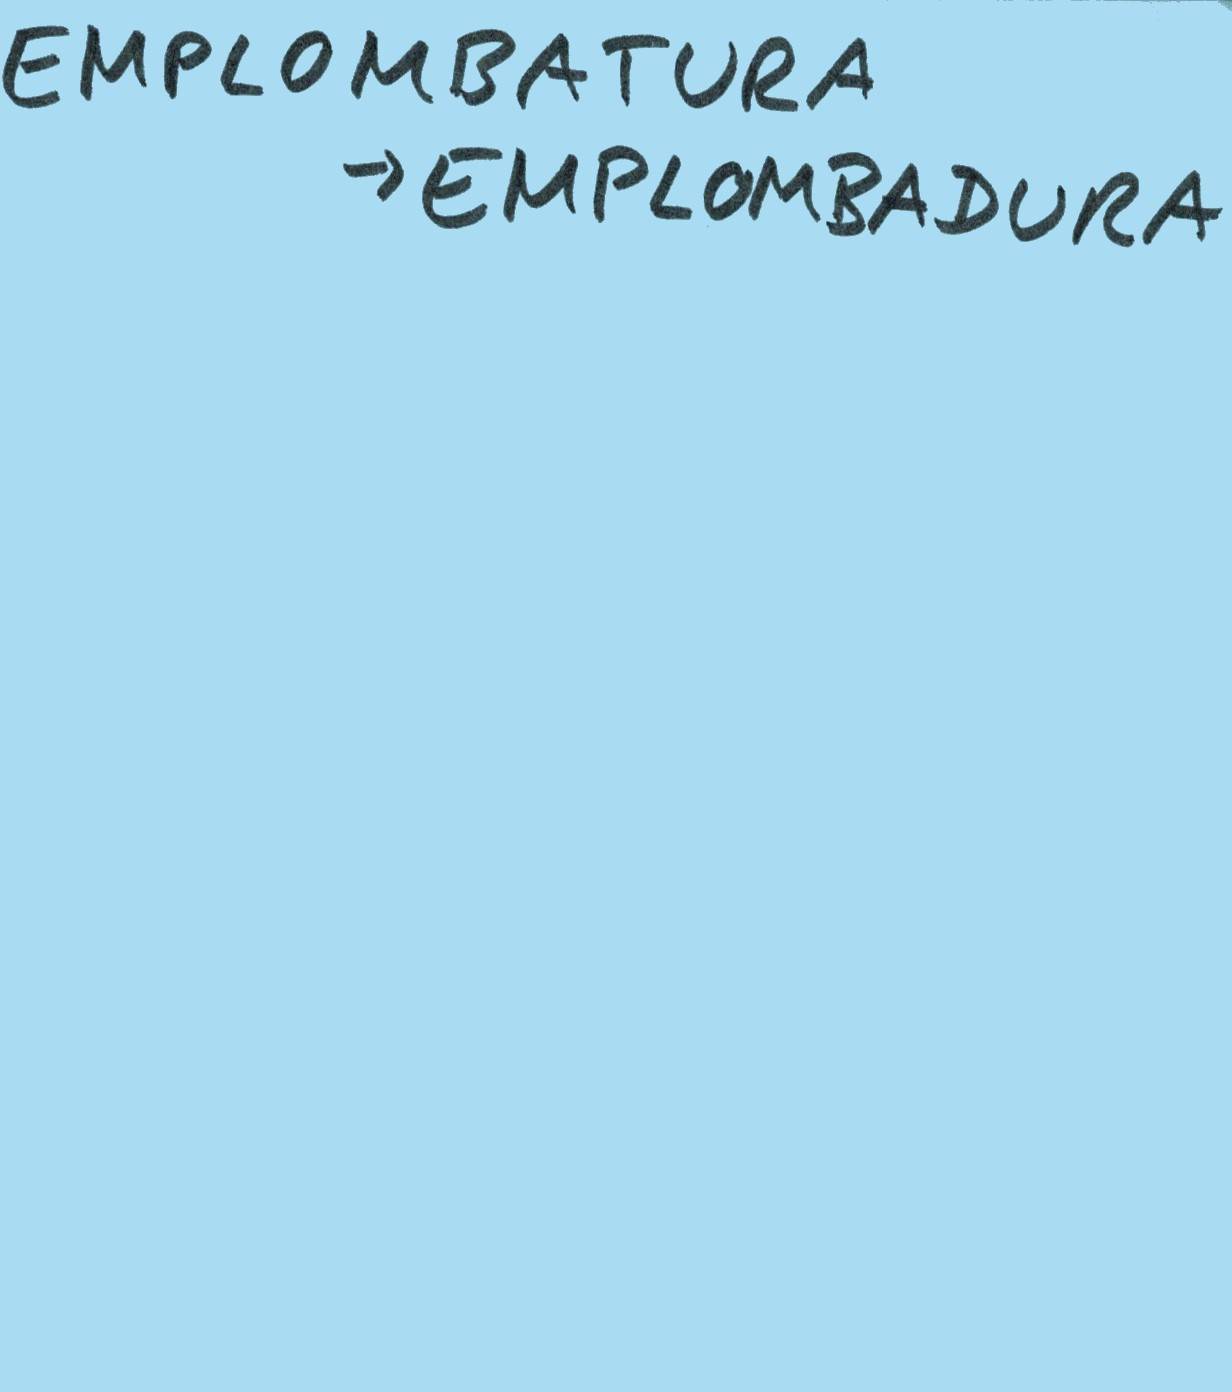 EMPLOMBATURA
→EMPLOMBADURA